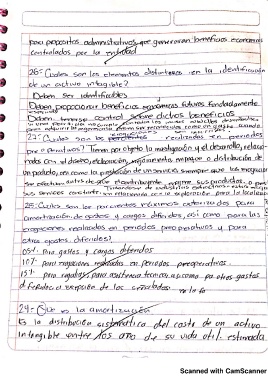 para propositos administrativos, que generaran beneficios economicos
controlados por la entidad
26- Cuales son los elementos distintivos en la identificación
de un activo intangible?
Deben ser identificables
Deben proporcionar beneficios economicos futuros fundadamente
Deben tenerse control sobre dichos beneficios
27- Cuales son los realizados en periodos
pre operativos? Tienen por objeto la investigación y el desarrollo, relacio-
nados con el diseño, elaboración, mejoramiento, empaque o distribución de
un producto, así como la prestación de un servicio siempre que las erogaciones
se efectuen antes de que enajene sus productos o preste
sus servicios
28- Cuales son los porcentos máximos autorizados para
amortización de gastos y cargos diferidos, así como para las
erogaciones realizadas en periodos preoperativos y para
otros gastos diferidos?
05% Para gastos y cargos diferidos
10% para erogaciones realizadas en periodos preoperativos
15% para regalías, para asistencia técnica, así como para otros gastos
diferidos a excepción de los
29- Que es la amortización
Es la distribución sistemática del costo de un activo
intangible entre los años de su vida útil estimada
Scanned with CamScanner